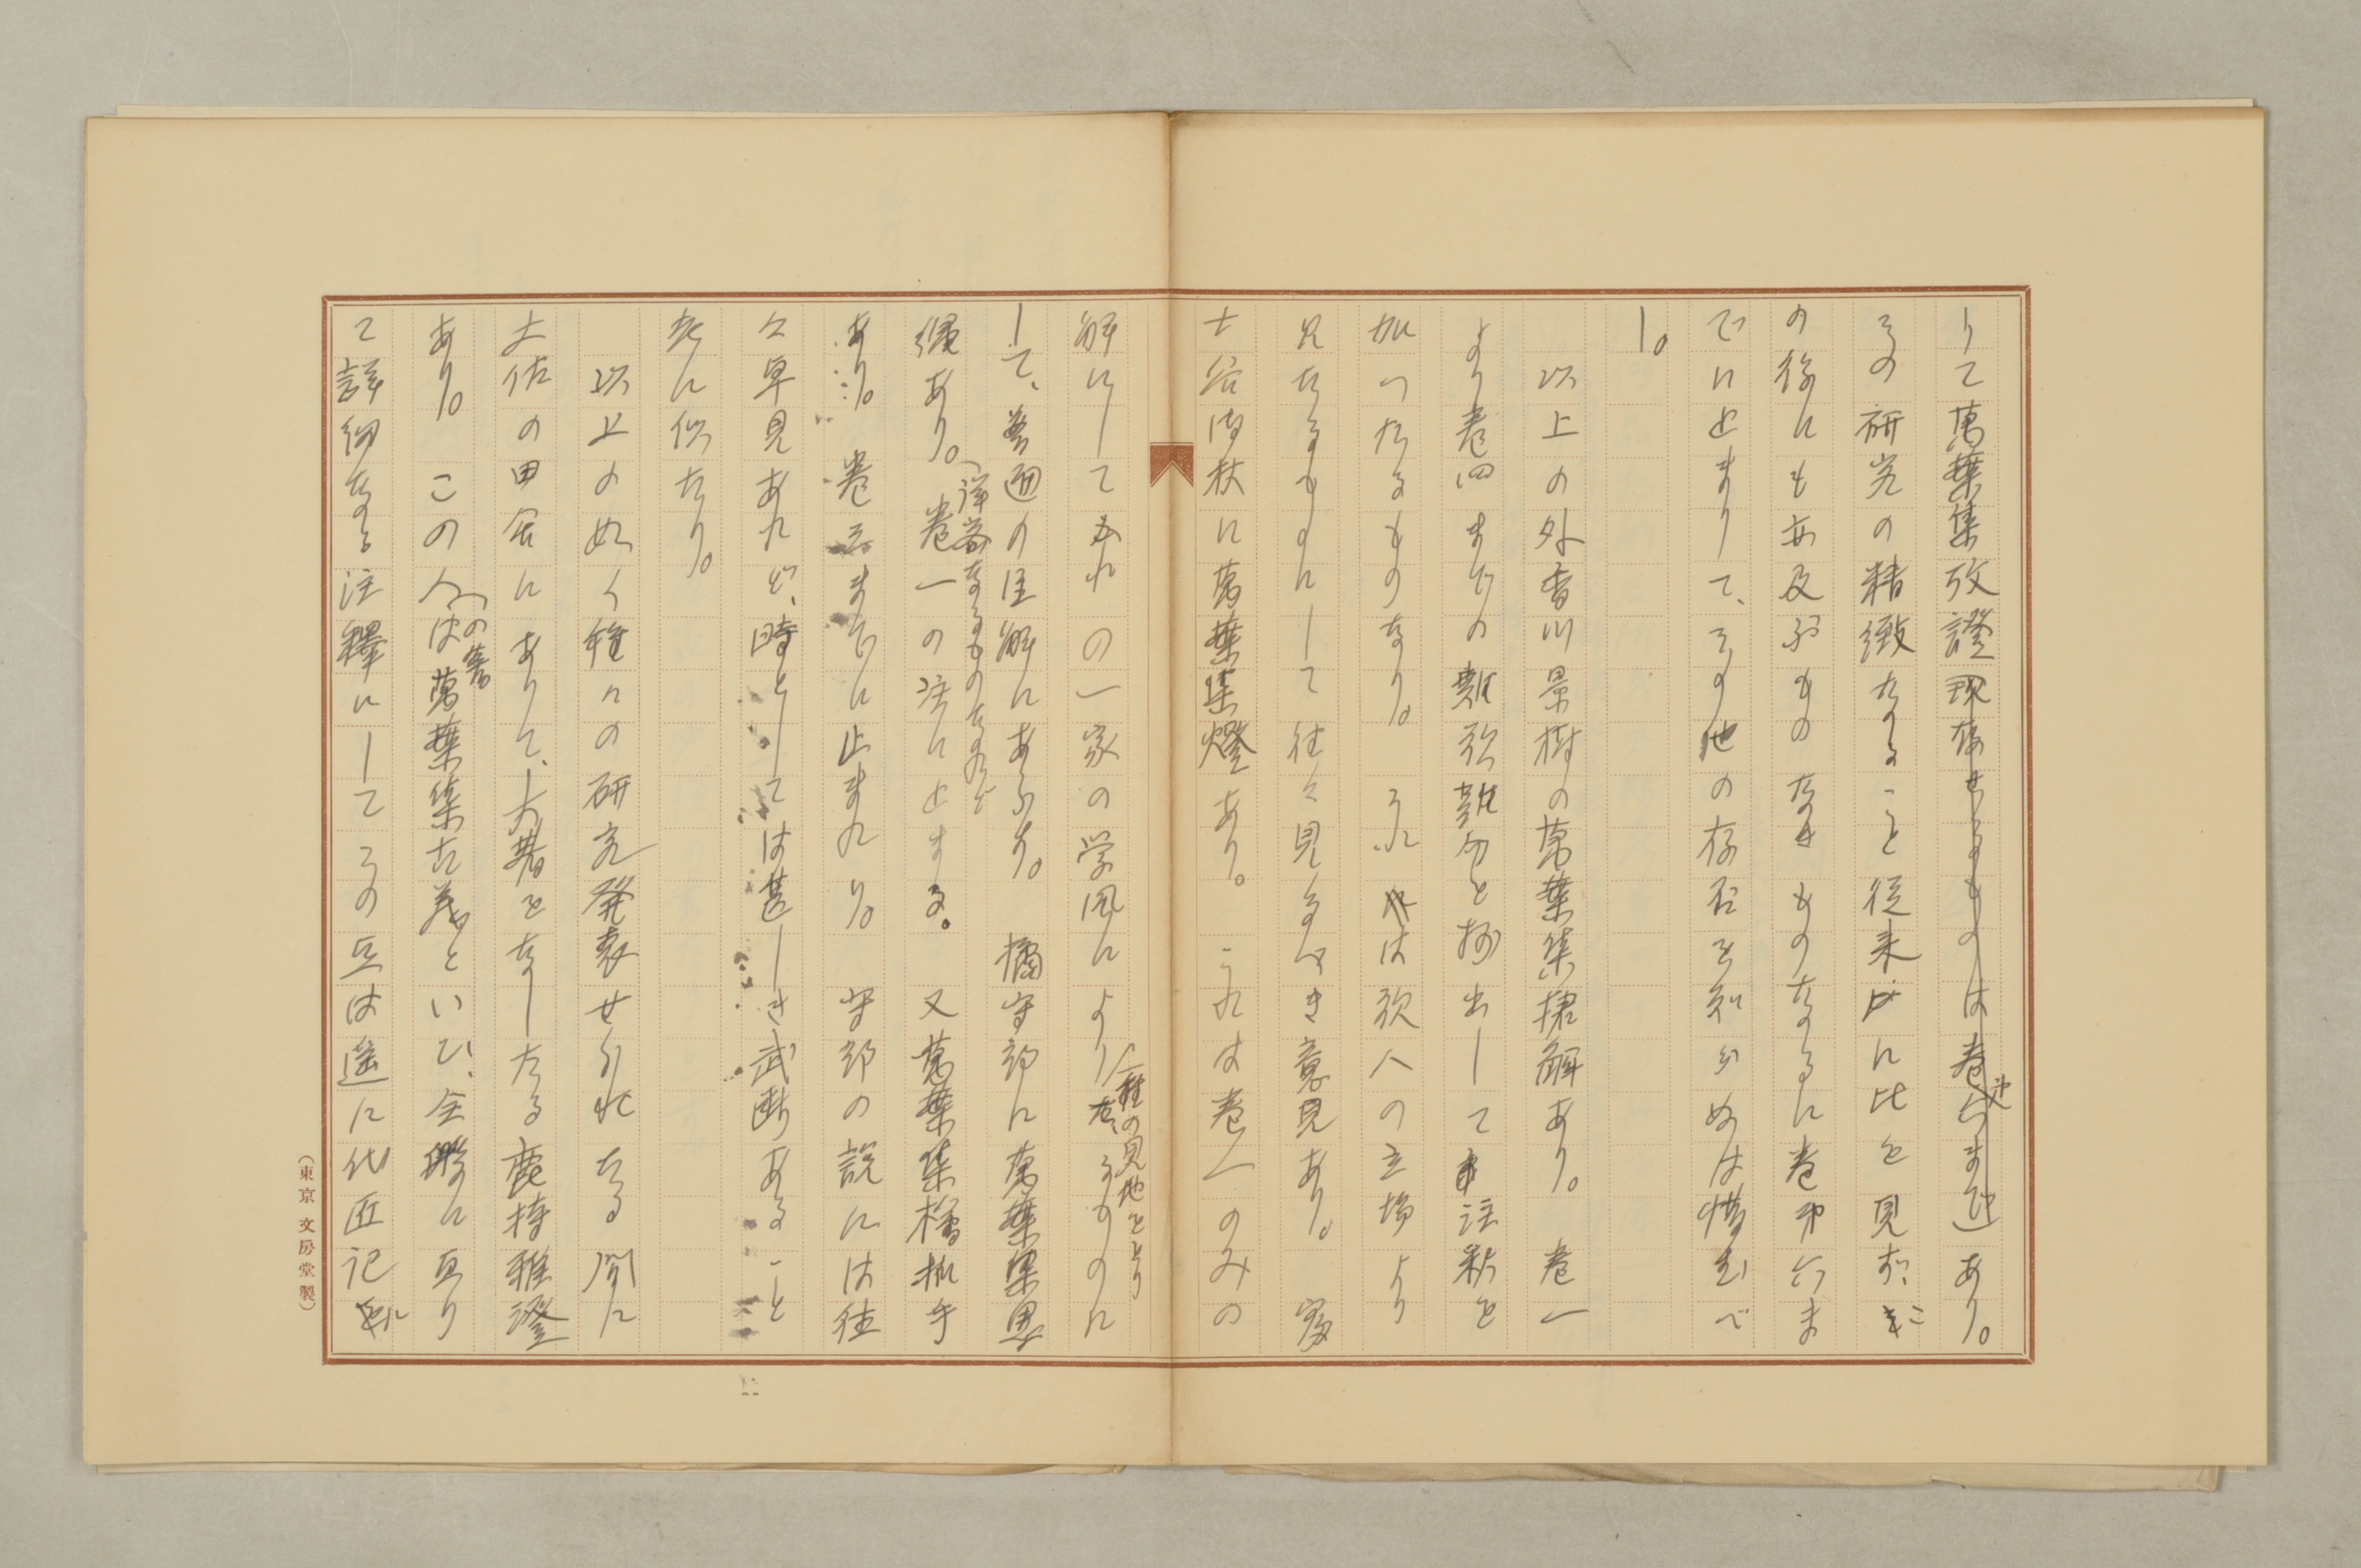 りて萬葉集攷證現存せるものは巻六まであり。
その研究の精緻なること従来に比を見ず、こ
の後にも亦及ぶものなきものなるに巻六ま
でにとまりて、その他の存否を知らぬは惜むべ
し。
以上の外香川景樹の萬葉集捃解あり。巻一
より巻四までの難歌難句を抄出して注釈を
加へたるものなり。これは歌人の立場より
見たるものにして往々見るべき意見あり。富
士谷御杖に萬葉集燈あり。これは巻一のみの
解にしてかれの一家の学風により一種の見地をとりたるものに
して、普通の注解にあらず。橘守部に萬葉集墨
縄あり。詳密なるものなれど巻一の注にとまる。又萬葉集檜抓手
あり。巻三までに止まれり。守部の説には往
々卓見あれど、時としては甚しき武断あること
先に似たり。
以上の如く種々の研究発表せられたる間に
土佐の田舎にありて、一大著をなしたる鹿持雅澄
あり。この人の著は萬葉集古義といひ、全部に亘り
て詳細なる注釋にしてその点は遥に代匠記に
（東京 文房堂製）